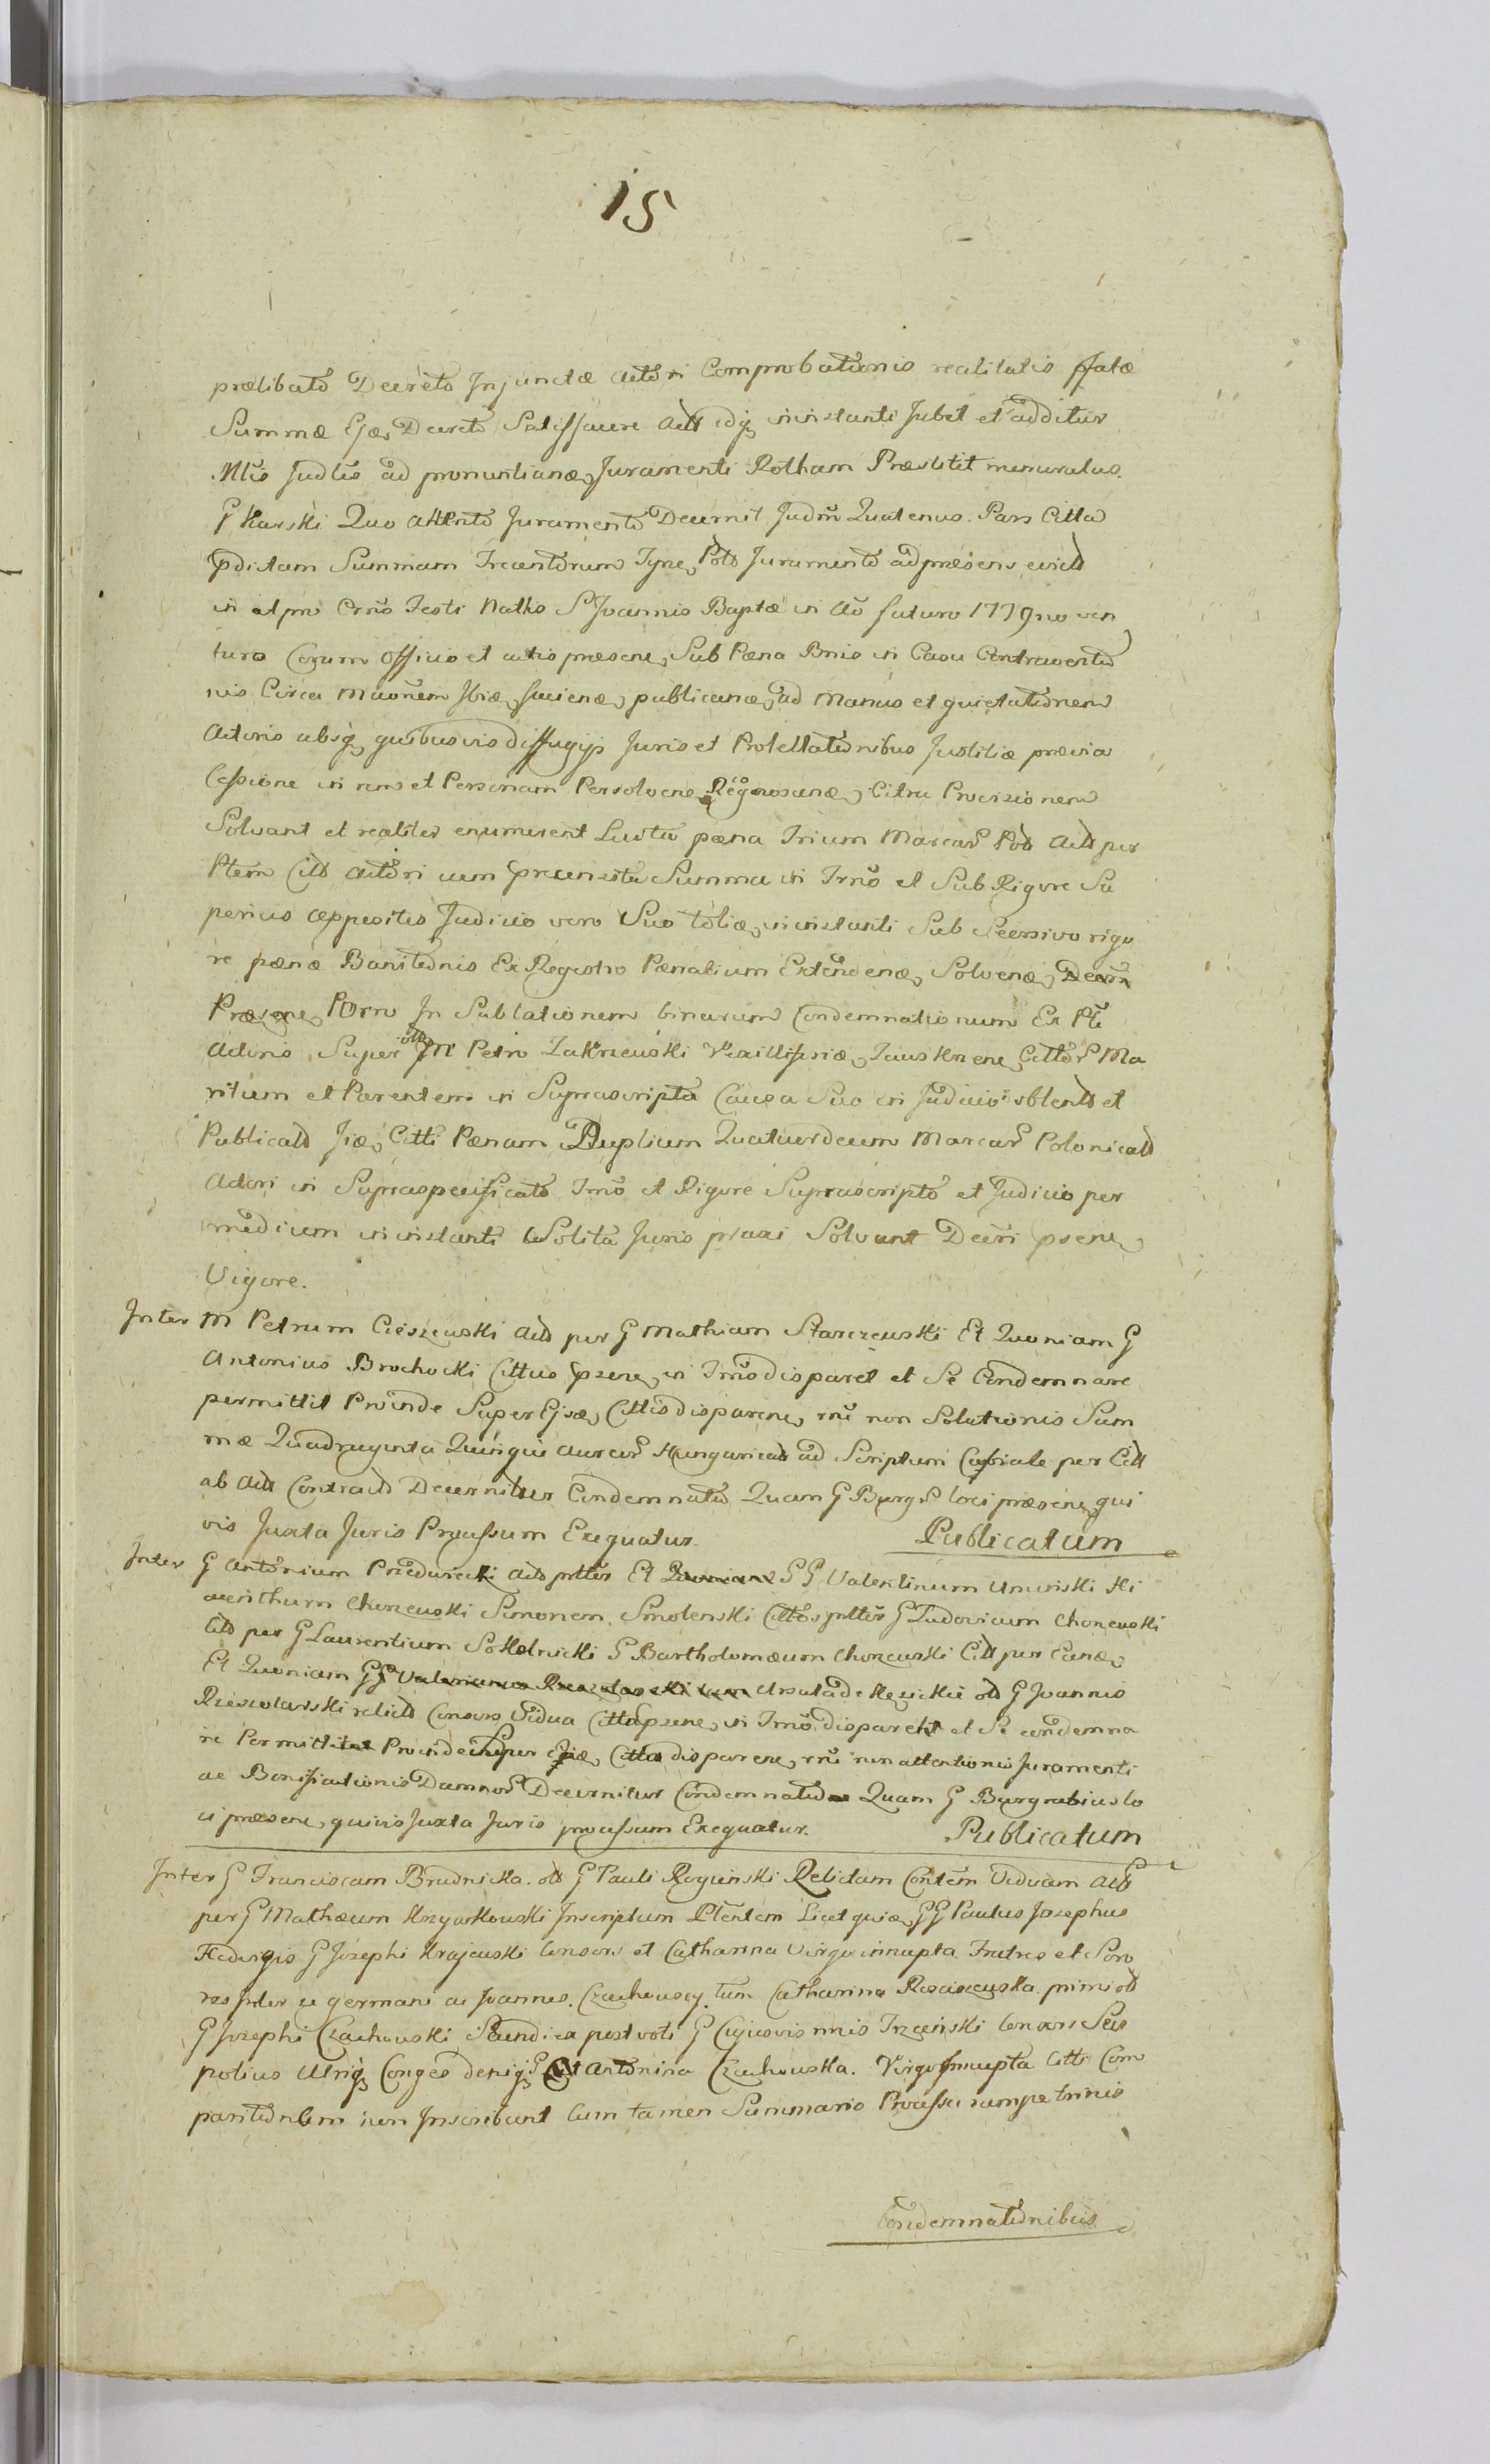 15
prælibato Decreto Injunctæ Actori Comprobationis realitatis ffatæ
Summæ Ejæ Decreto Satisfacere Actt idq instanti Jubet et additur
Mtis Judtis ad pronuntianæ Juramenti Rotham Præstitit memoratus
G Karski Quo Attento Juramento Decernit Judm Quatenus Pars Citta
pdictam Summam Trecentorum Tyne Polo Juramento ad præsens evicto
in et pro Crno Festi Nattis S Joannis Baptæ in Ao futuro 1779no ven
turo Coram Officio et actis præsene Sub Pæna Bnis in Casu Contraventio
nis Circa maonem Ibiæ facienæ publicanæ ad Manus et quietationem
Actoris absq quibusvis diffugijs Juris et Protestationibus Justitiæ prævia
Cessione in rem et Personam Persolvene Regnoscanæ Citra Provisionem
Solvant et realiter enumerent Luctu pæna Trium Marcar Pol Actt per
Ptem Citt Actori cum precensita Summa in Trno et Sub Rigore Su
perius Appositis Judicio vero Suo totiæ in instanti Sub Seersivo rigo
re pænæ Banitionis Ex Registro Pænalium Extendenæ Solvenæ Decri
Præsene Porro In Sublationem binarum Condemnationum Ex Pte
Actoris Super olim M Petro Zakrzewski Vexilliferiæ Cittor Ma
ritum et Parentem in Suprascripta Causa Suo in Judicio obtent et
Publicatt Jiæ Citti Pænam Duplium Quatuordecim Marcar Polonicatt
Actori in Supraspecificato Trno et Rigore Suprascripto et Judicio per
medium in instanti Solita Juris praxi Solvant Decri psene
Vigore.
Inter M Petrum Cieszewski Actt per G Mathiam Starczewski Et Quoniam G
Antonius Brochocki Cittus psene in Trno disparet et Se Condemnare
permittit Proinde Super Ejsæ Cittis disparene rne non Solutionis Sum
mæ Quadraginta Quinque Aureor Hungaricatt ad Scriptum per Citt
ab Actt Contracto Decernitur Condemnatio Quam G Burgs loci præsene qui
vis Juxta Juris Processum Exequatur. Publicatum
Inter G Antonium Przedwiecki Actt ptter Et GG Valentinum Uminski Hi
acinthum Chorzewski Simonem Smolenski Cittos pttes G Ludovicum Chorzewski
Citt per G Laurentium Sokolnicki G Bartholomæum Chorzewski Citt per Eanæ
Et Quoniam G Ursula de olt G Joannis
Rzeszotarski relicta Consors Vidua Citta psene in Trno disparet et Se condemna
re Permittit Proinde Super Ejæ Citta disparene rne non attentionis Juramenti
ac Bonificationis Damnor Decernitur Condemnatio Quam G Burgrabius lo
ci præsene quivis Juxta Juris processum Exequatur. Publicatum
Inter G Franciscam Brudnicka olt G Pauli Rogienski Relictam Contem Viduam Actt
per G Mathæum Krzyszkowski Inscriptum Ptentem Licet quiæ GG Paulus Josephus
Hedvigis G Josephi Krajewski Consors et Catharina Virgo innupta Fratres et Soro
res Inter se germani ac Joannes Czachowscy tum Catharina Rosciszewska primi olt
G Josephi Czachowski Secundi ex post voti G Cujusvis nnis Trzcinski Consors Seu
potius Utriq Conges deniq G Et Antonina Czachowska Virgo Innupta Citti Com
paritionem non Inscribunt Cum tamen Summario Processu trinis
Condemnationibus